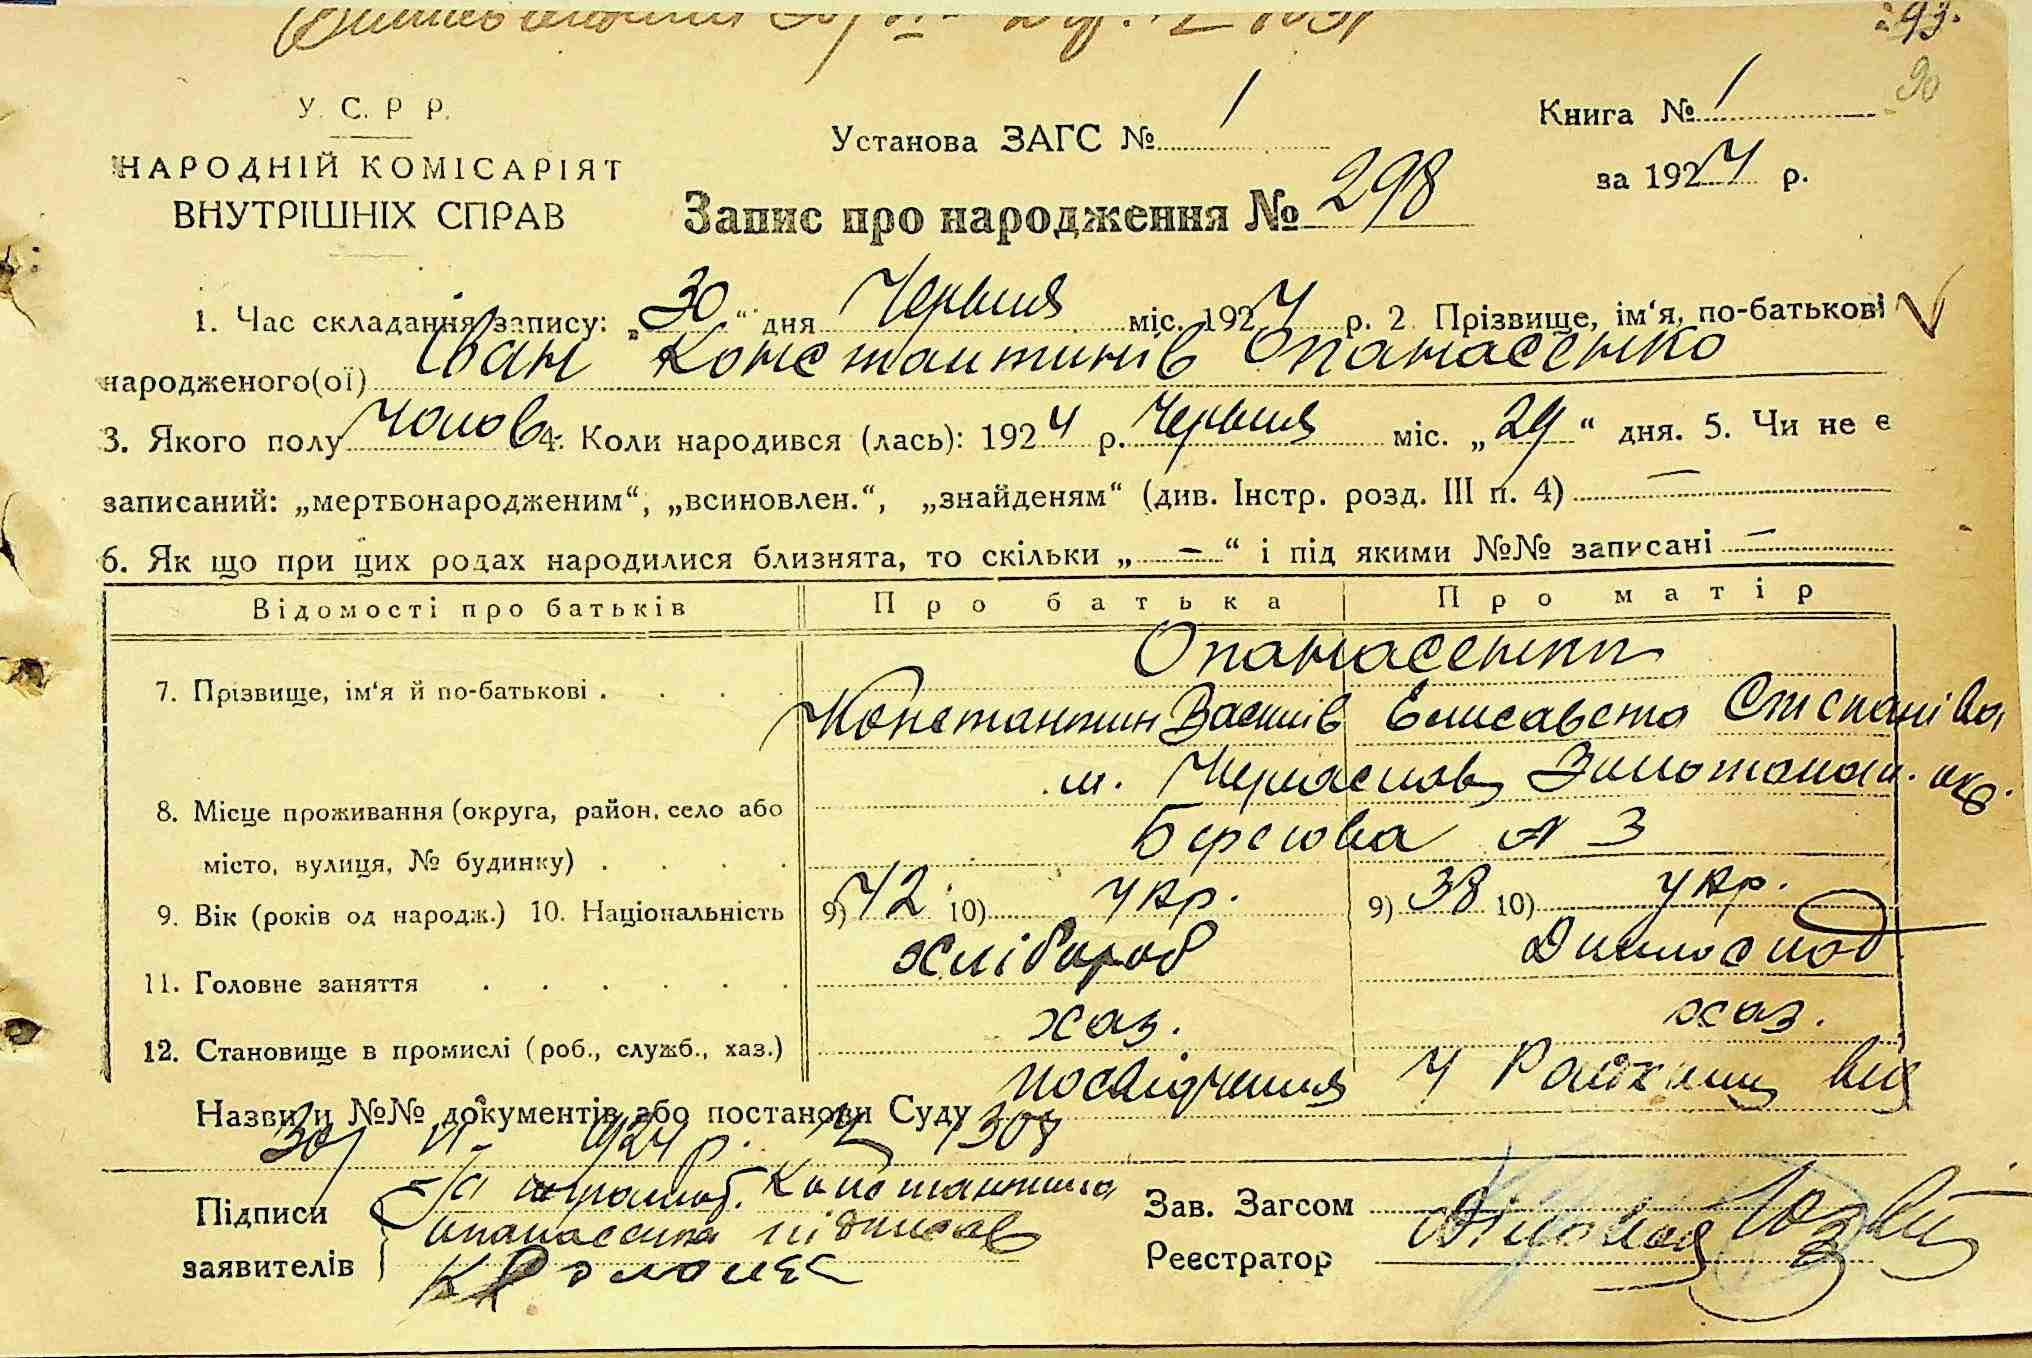 293.
90
У. С. Р Р.
НАРОДНІЙ КОМІСАРІЯТ
ВНУТРІШНІХ СПРАВ
Установа ЗАГС № 1
Книга № 1
за 1924 р.
Запис про народження № 298
1. Час складання запису: „30" дня Червня міс. 1924 р. 2 Прізвище, ім'я, по-батькові
народженого(ої) Іван Константинів Опанасенко
3. Якого полу чолов. 4. Коли народився (лась): 1924 р. Червня міс. „29" дня. 5. Чи не є
записаний: „мертвонародженим", „всиновлен.", „знайденям" (див. Інстр. розд. III п. 4) —
6. Як що при цих родах народилися близнята, то скільки „ — " і під якими №№ записані —
Відомості про батьків Про батька Про матір
Опанасенки
7. Прізвище, ім'я й по-батькові . . . . Константин Василів Елисавета Степанівна
м. Черкаси Золотонош. окр.
8. Місце проживання (округа, район, село або
місто, вулиця, № будинку) . . . . Берегова № 3
9. Вік (років од народж.) 10. Національність 9) 42 10) укр. 9) 38 10) укр.
11. Головне заняття . . . . . . хлібороб Домогоспод
12. Становище в промислі (роб., служб., хаз.) хаз. хаз.
Назви и №№ документів або постанови Суду посвідчення від
30/VI 1924 р. № 1307
Підписи
заявителів
За неграмот. Константина
Опанасенка підписав
Зав. Загсом
Реєстратор